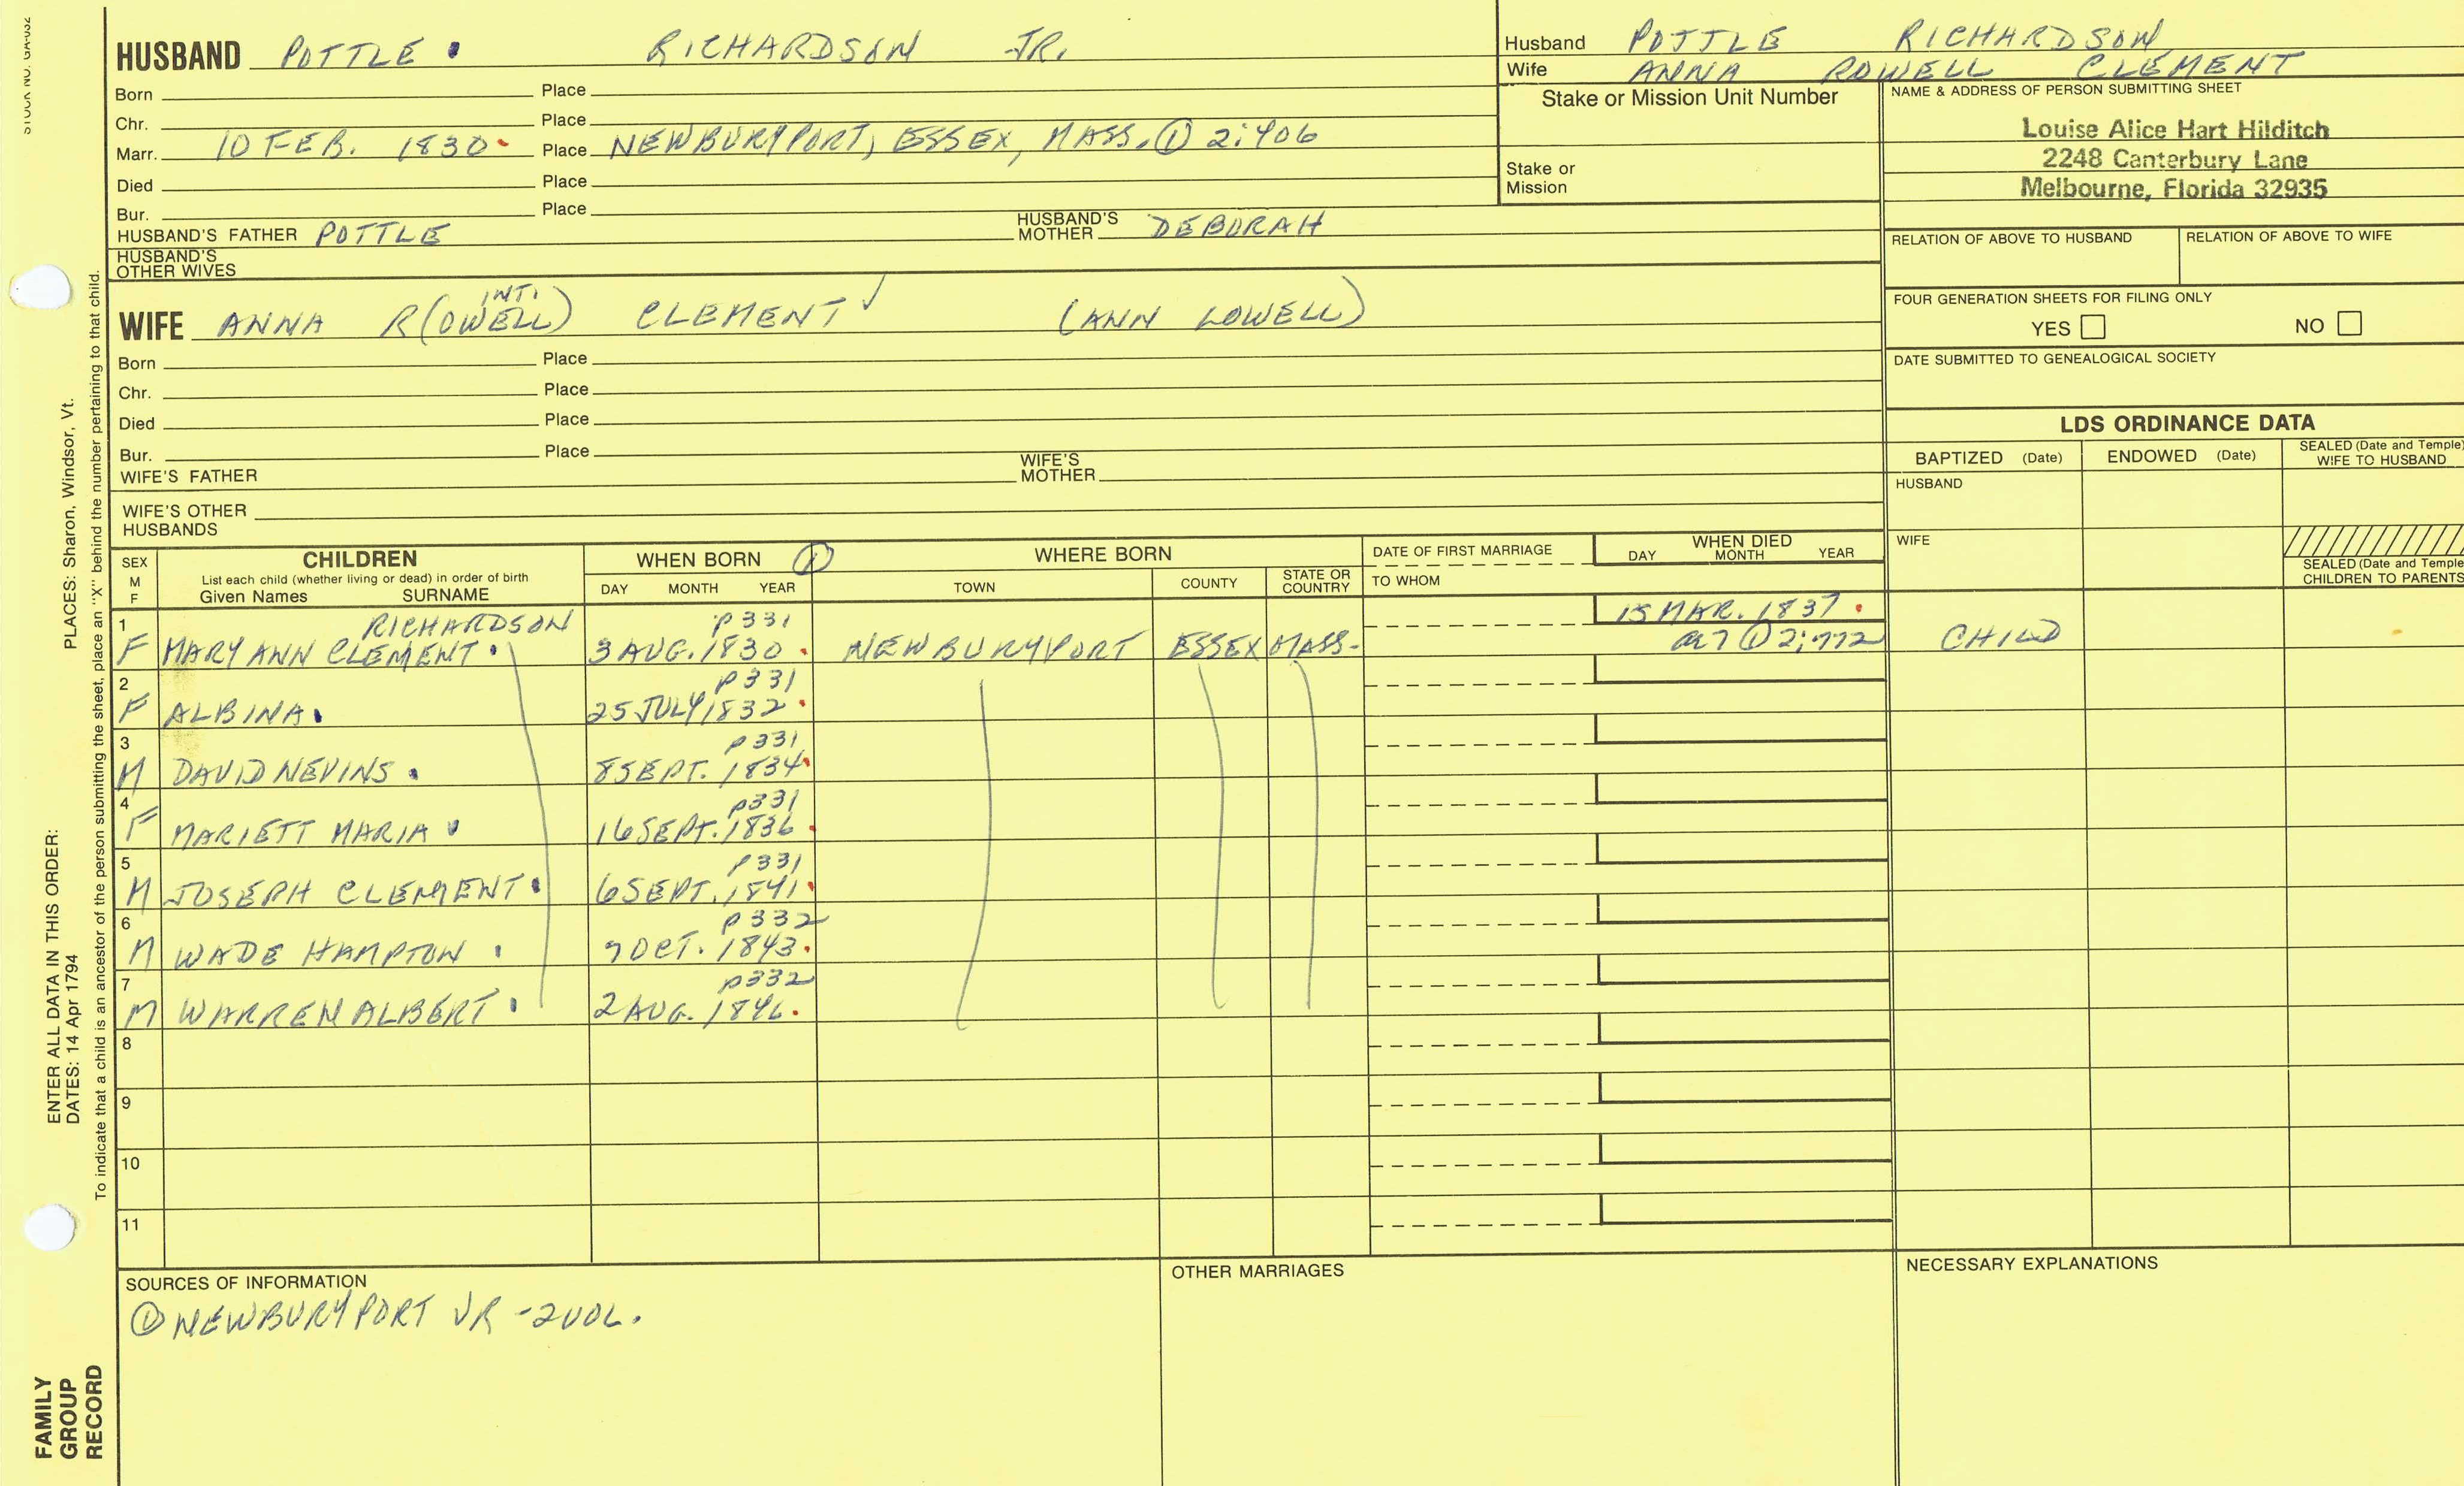 HUSBAND POTTLE RICHARDSON JR.
Born Place
Chr. Place
Marr. 10 FEB. 1830 Place NEWBURYPORT, ESSEX, MASS. ① 2:406
Died Place
Bur. Place
HUSBAND'S FATHER POTTLE HUSBAND'S MOTHER DEBORAH
HUSBAND'S OTHER WIVES
WIFE ANNA R(OWELL) INT. CLEMENT ✓ (ANN LOWELL)
Born Place
Chr. Place
Died Place
Bur. Place
WIFE'S FATHER WIFE'S MOTHER
WIFE'S OTHER HUSBANDS
Husband POTTLE RICHARDSON
Wife ANNA ROWELL CLEMENT
Stake or Mission Unit Number
Stake or Mission
NAME & ADDRESS OF PERSON SUBMITTING SHEET
Louise Alice Hart Hilditch
2248 Canterbury Lane
Melbourne, Florida 32935
RELATION OF ABOVE TO HUSBAND RELATION OF ABOVE TO WIFE
FOUR GENERATION SHEETS FOR FILING ONLY
YES NO
DATE SUBMITTED TO GENEALOGICAL SOCIETY
LDS ORDINANCE DATA
BAPTIZED (Date) ENDOWED (Date) SEALED (Date and Temple) WIFE TO HUSBAND
HUSBAND
WIFE
SEALED (Date and Temple) CHILDREN TO PARENTS
SEX M F
CHILDREN
List each child (whether living or dead) in order of birth
Given Names SURNAME
WHEN BORN ①
DAY MONTH YEAR
WHERE BORN
TOWN COUNTY STATE OR COUNTRY
DATE OF FIRST MARRIAGE
TO WHOM
WHEN DIED
DAY MONTH YEAR
1 RICHARDSON p331 15 MAR. 1837
F MARY ANN CLEMENT 3 AUG. 1830 NEWBURYPORT ESSEX MASS. a7 ① 2:772 CHILD
2 p331
F ALBINA 25 JULY 1832
3 p331
M DAVID NEVINS 8 SEPT. 1834
4 p331
F MARIETT MARIA 16 SEPT. 1836
5 p331
M JOSEPH CLEMENT 6 SEPT. 1841
6 p332
M WADE HAMPTON 9 OCT. 1843
7 p332
M WARREN ALBERT 2 AUG. 1846
8
9
10
11
SOURCES OF INFORMATION
① NEWBURYPORT VR - 2 VOL.
OTHER MARRIAGES
NECESSARY EXPLANATIONS
ENTER ALL DATA IN THIS ORDER:
DATES: 14 Apr 1794 PLACES: Sharon, Windsor, Vt.
To indicate that a child is an ancestor of the person submitting the sheet, place an "X" behind the number pertaining to that child.
FAMILY
GROUP
RECORD